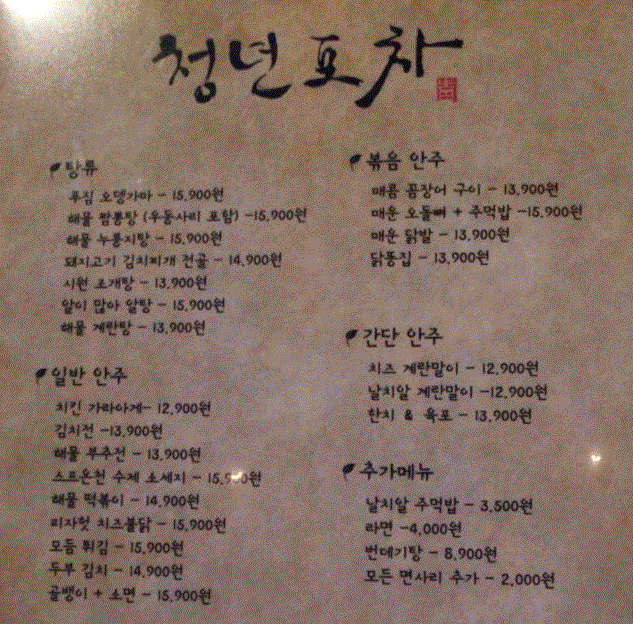 청년포차
탕류
푸짐 오뎅가마 - 15,900원
해물 짬뽕탕 (우동사리 포함) -15,900원
해물 누룽지탕 - 15,900원
돼지고기 김치찌개 전골 - 14,900원
시원 조개탕 - 13,900원
알이 많아 알탕 - 15,900원
해물 계란탕 - 13,900원
일반 안주
치킨 가라아게- 12,900원
김치전 -13,900원
해물 부추전 - 13,900원
스프온천 수제 소세지 -
해물 떡볶이 - 14,900원
피자헛 치즈불닭 - 15,900원
모듬 튀김 - 15,900원
두부 김치 - 14,900원
골뱅이 + 소면 - 15,900원
볶음 안주
매콤 꼼장어 구이 - 13,900원
매운 오돌뼈 + 주먹밥 -15,900원
매운 닭발 - 13,900원
닭똥집 - 13,900원
간단 안주
치즈 계란말이 - 12,900원
날치알 계란말이 -12,900원
한치 & 육포 - 13,900원
추가메뉴
날치알 주먹밥 - 3,500원
라면 -4,000원
번데기탕 - 8,900원
모든 면사리 추가 - 2,000원